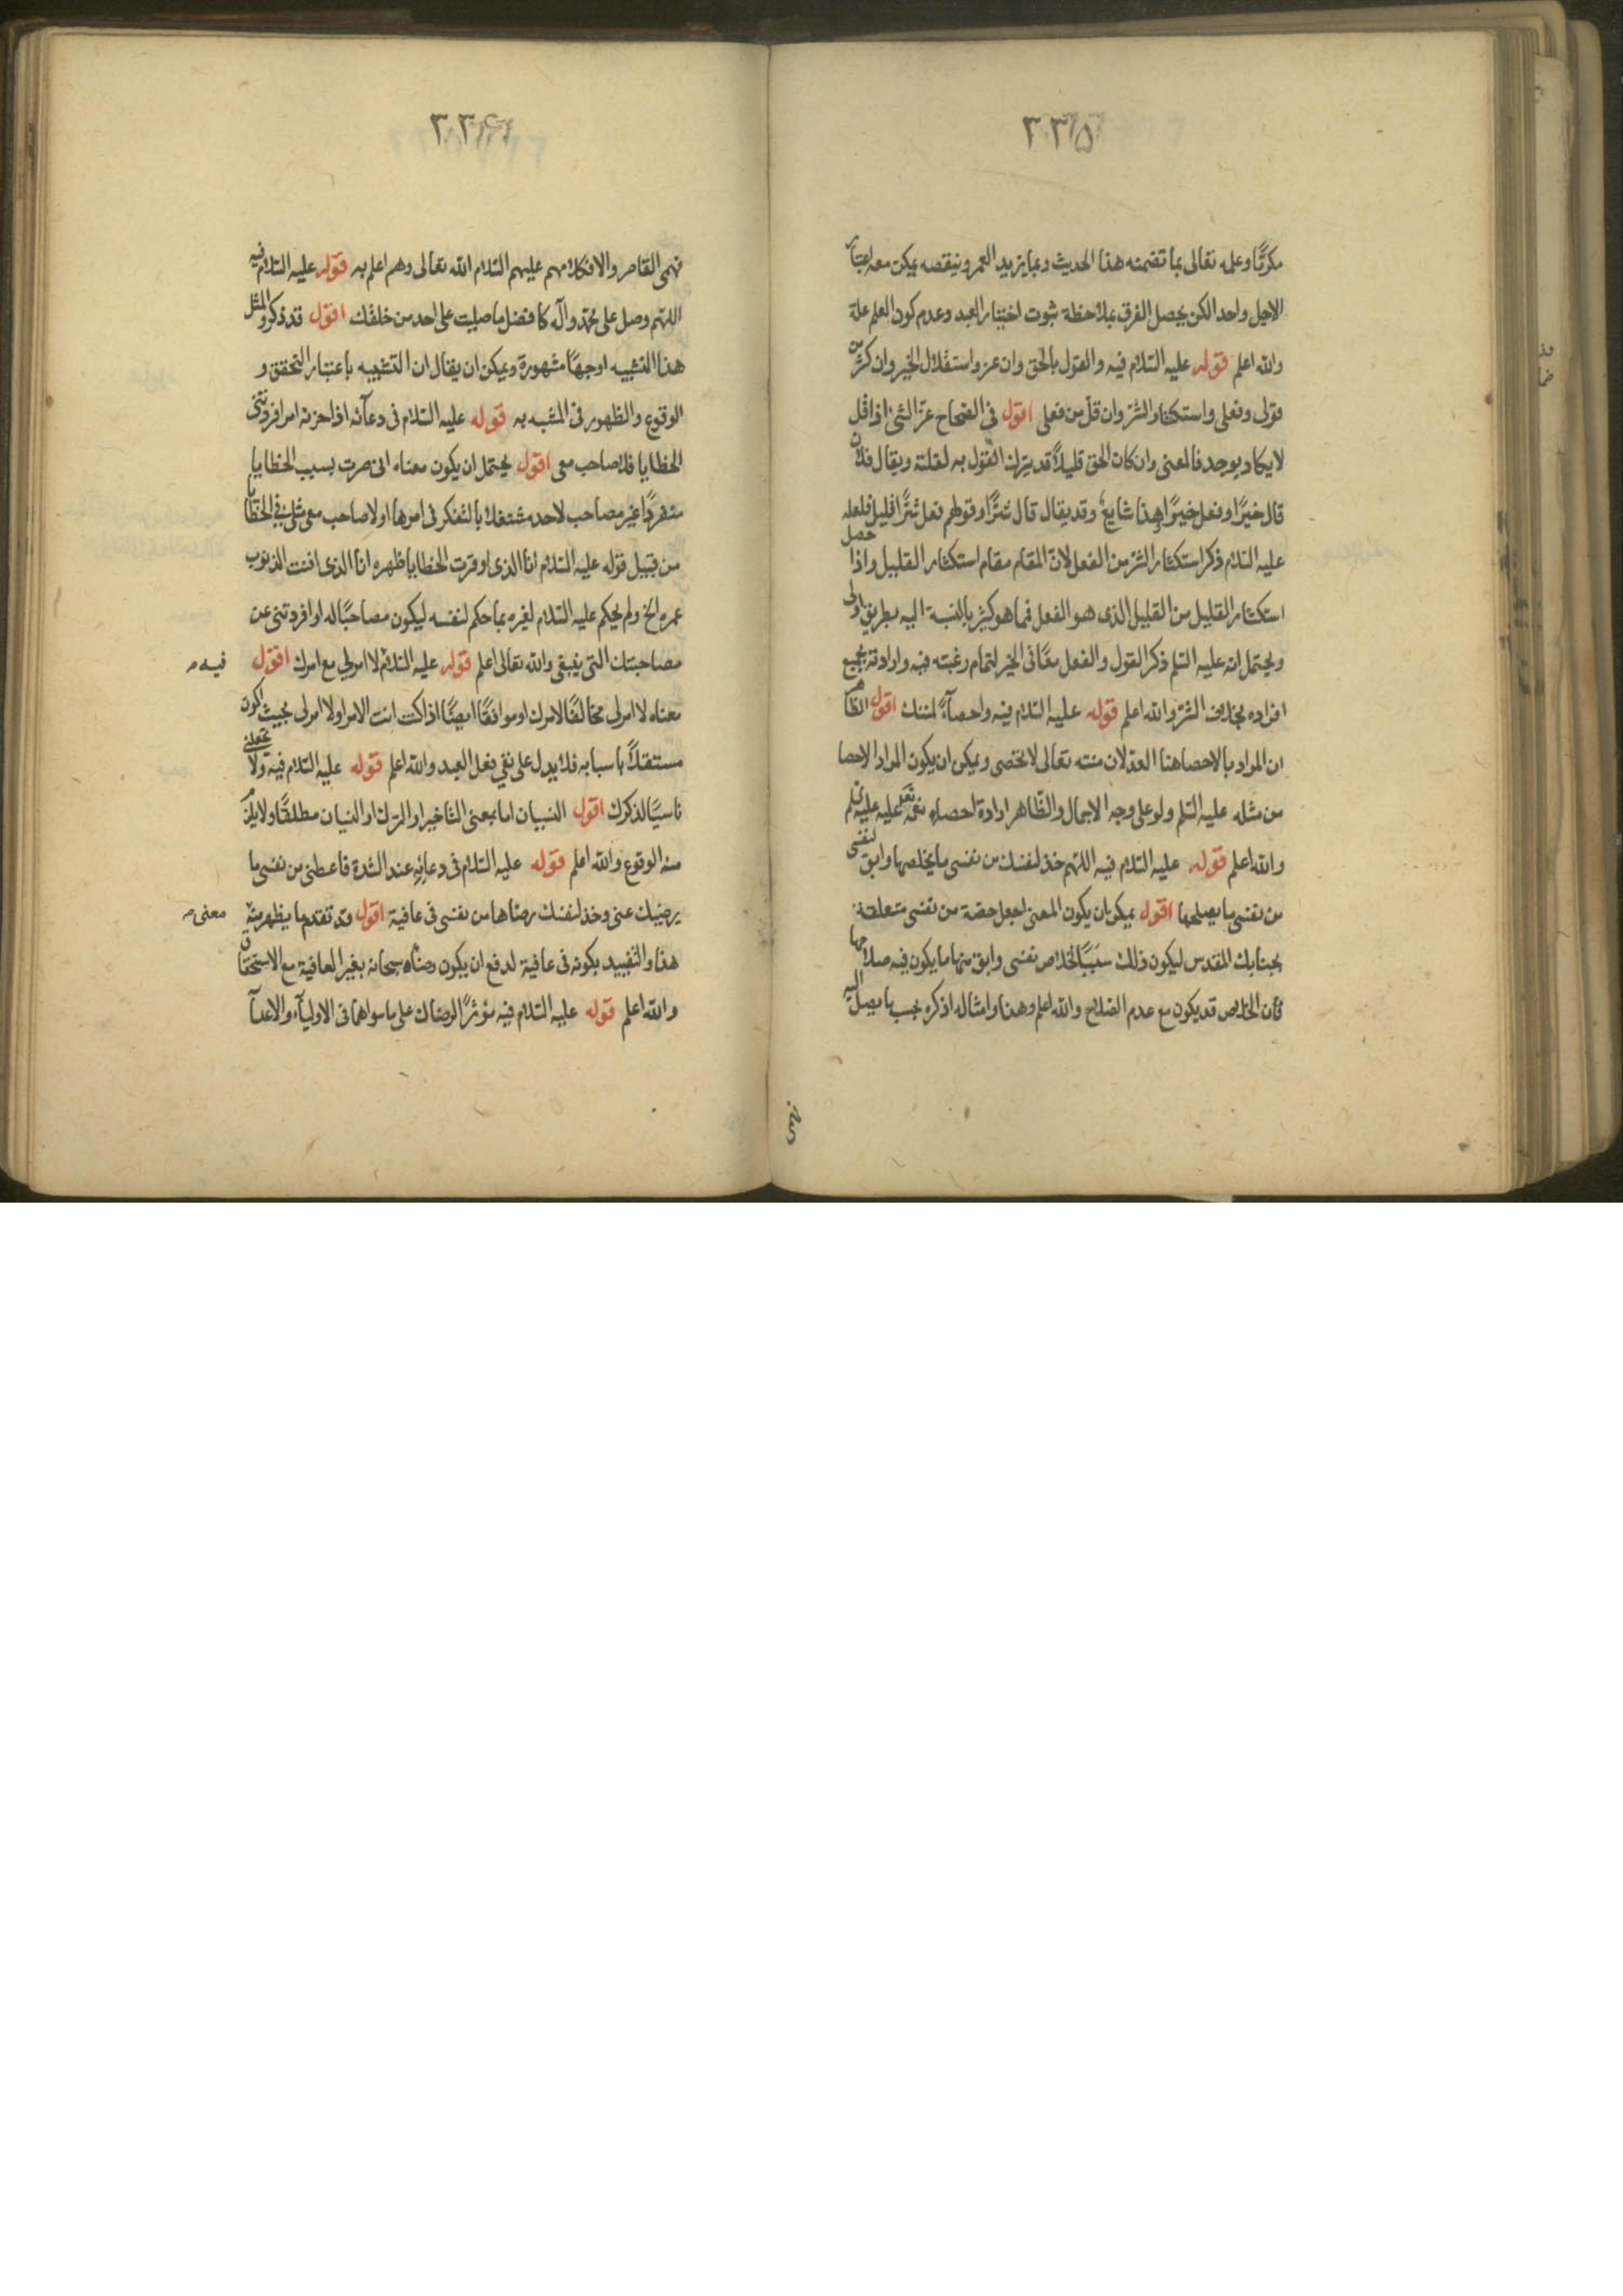 ٣٣٥
مكررًا وعلمه تعالى بما تضمنه هذا الحديث وبما يزيد العمر وينقصه يمكن معه اعتبار
الاجل واحدا لكن يحصل الفرق بملاحظة ثبوت اختيار العبد وعدم كون العلم علة
والله اعلم قوله عليه السلام فيه والقول بالحق وان عز واستقلال الخير وان كثر من
قولى وفعلى واستكثار الشر وان قل من فعلى اقول في الصحاح عز الشئ اذا قل
لا يكاد يوجد فالمعنى وان كان الحق قليلاً قد يترك القول به لقلته ويقال فلان
قال خيرًا وفعل خيرًا وهذا شايع وقد يقال قال شرًّا وقولهم فعل شرًّا قليل فلعله
عليه السلام ذكر استكثار الشر من الفعل لان المقام مقام استكثار القليل واذا حصل
استكثار القليل من القليل الذى هو الفعل فما هو كثير بالنسبة اليه بطريق اولى
ويحتمل انه عليه السلم ذكر القول والفعل معًا في الخير لتمام رغبته فيه وارادته بجميع
افراده بخلاف الشر والله اعلم قوله عليه السلام فيه واحصآءً لمننك اقول الظاهر
ان المراد بالاحصا هنا العد لان مننه تعالى لا تحصى ويمكن ان يكون المراد الاحصا
من مثله عليه السلم ولو على وجه الاجمال والظاهر ارادة احصاء نعمه تعلى عليه عليه السلم
والله اعلم قوله عليه السلام فيه اللهم خذ لنفسك من نفسى ما يخلصها وابق لنفسى
من نفسى ما يصلحها اقول يمكن ان يكون المعنى اجعل حصة من نفسى متعلقة
بجنابك المقدس ليكون ذلك سببًا لخلاص نفسى وابق منها ما يكون فيه صلاحها
فان الخلاص قد يكون مع عدم الصلاح والله اعلم وهذا وامثاله اذكره بحسب ما يصل اليه
٣٣٦
فهمى القاصر والا فكلامهم عليهم السلام الله تعالى وهم اعلم به قوله عليه السلام فيه
اللهم وصل على محمد وآله كافضل ما صليت على احد من خلقك اقول قد ذكروا لمثل
هذا التشبيه اوجهًا مشهورة ويمكن ان يقال ان التشبيه باعتبار التحقق و
الوقوع والظهور في المشبه به قوله عليه السلام فى دعآئه اذا حزنه امر افردتنى
الخطايا فلا صاحب معى اقول يحتمل ان يكون معناه انى صرت بسبب الخطايا
منفردًا غير مصاحب لاحد مشتغلا بالتفكر فى امرها او لا صاحب معى مثلى في الخطايا
من قبيل قوله عليه السلام انا الذى اوقرت الخطايا ظهره انا الذى افنت الذنوب
عمره الخ ولم يحكم عليه السلام لغيره بما حكم لنفسه ليكون مصاحبًا له او افردتنى عن
مصاحبتك التى ينبغى والله تعالى اعلم قوله عليه السلام لا امر لي مع امرك اقول
فيه م
معناه لا امر لى مخالفًا لامرك او موافقًا ايضًا اذا كنت انت الامر او لا امر لى بحيث اكون
مستقلاً باسبابه فلا يدل على نفي فعل العبد والله اعلم قوله عليه السلام فيه ولا تجعلني
ناسيًا لذكرك اقول النسيان اما بمعنى التأخير او الترك او النسيان مطلقًا ولا يلزم
منه الوقوع والله اعلم قوله عليه السلام فى دعائه عند الشدة فاعطنى من نفسى ما
يرضيك عنى وخذ لنفسك رضاها من نفسى فى عافية اقول قد تقدم ما يظهر منه
معنى م
هذا والتقييد بكونه فى عافية لدفع ان يكون رضاه سبحانه بغير العافية مع الاستحقاق
والله اعلم قوله عليه السلام فيه مؤثرًا لرضاك على ما سواهما فى الاوليآء والاعدآ